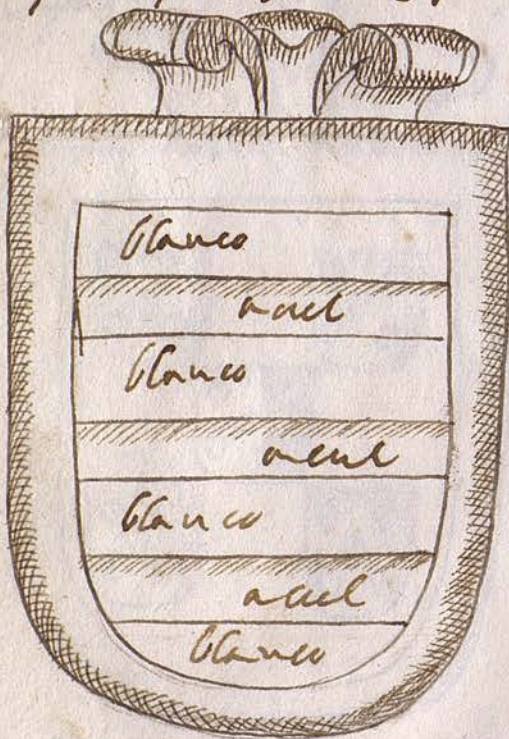 blanco
açul
blanco
açul
blanco
açul
blanco